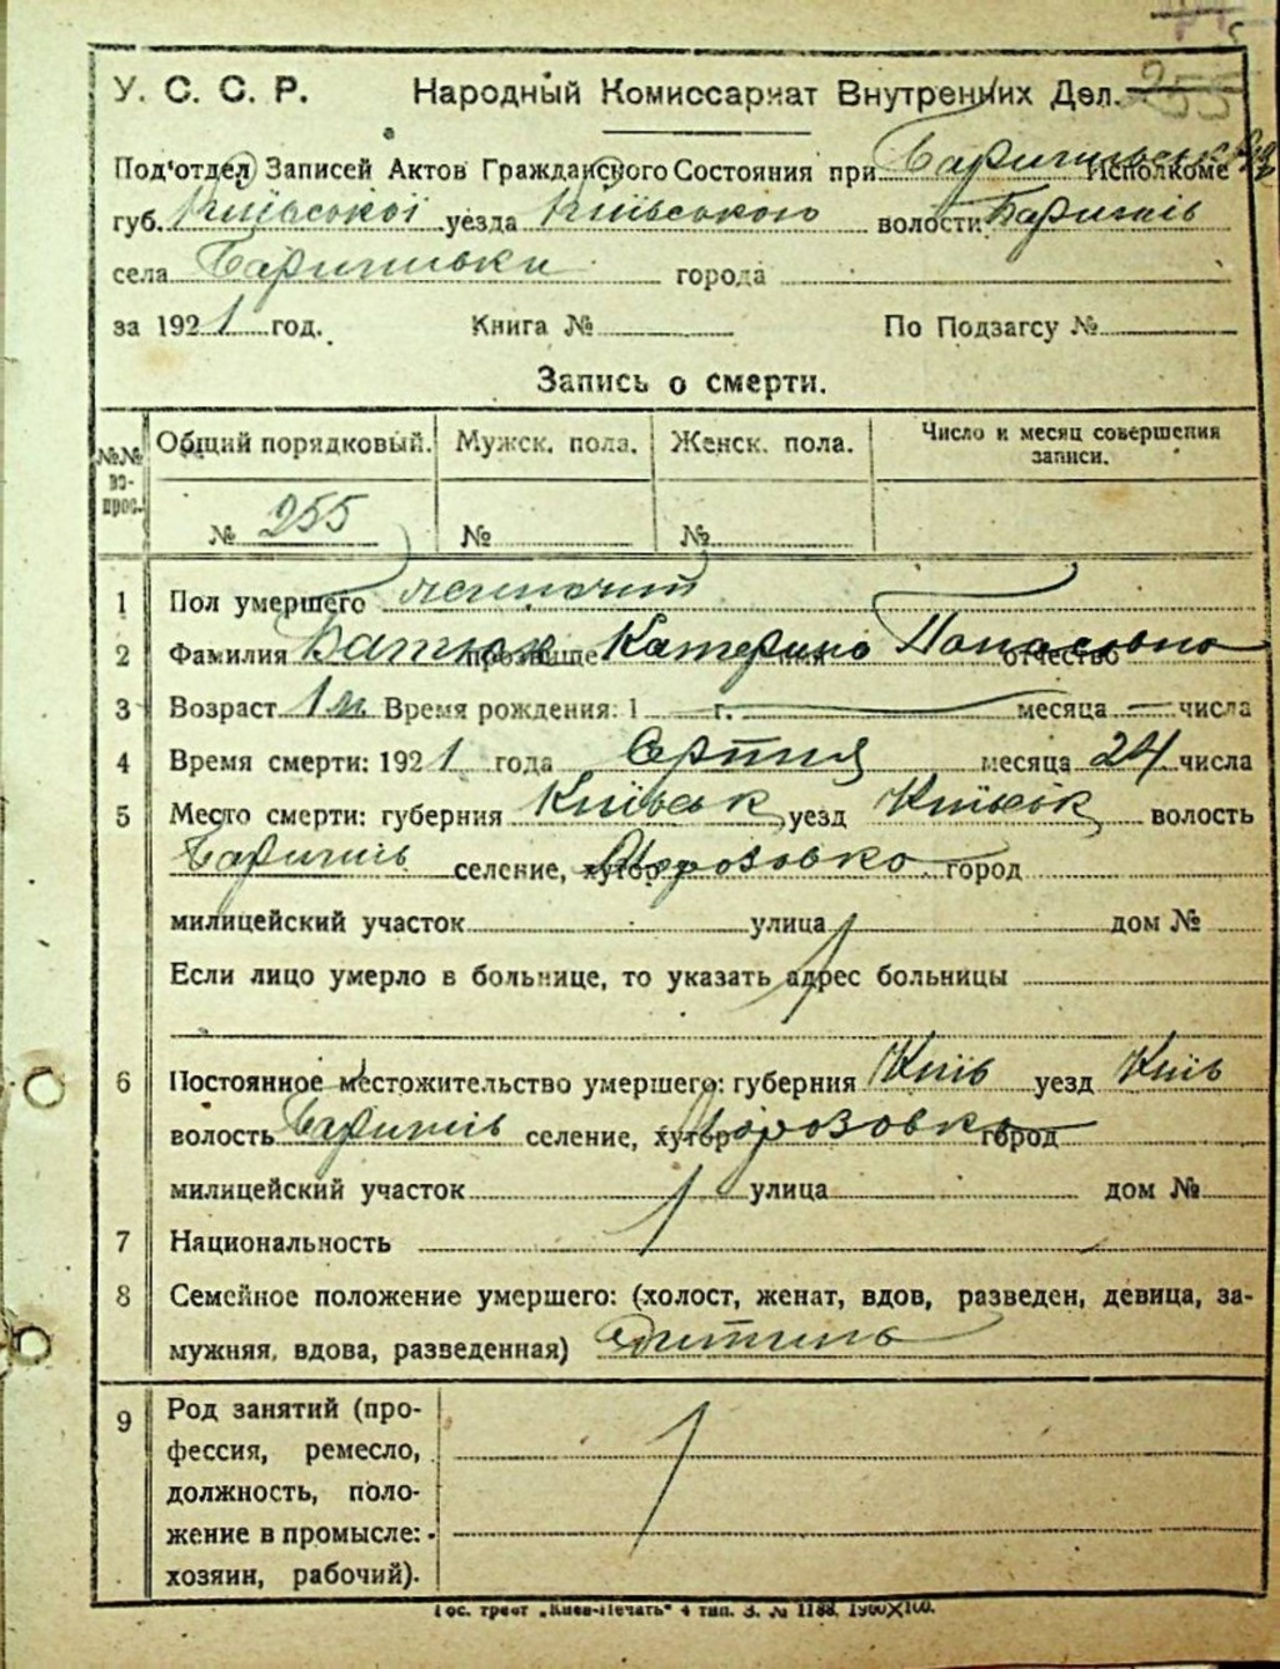 У. С. С. Р. Народный Комиссариат Внутренних Дел.
Под'отдел Записей Актов Гражданского Состояния при Исполкоме
губ. Київської уезда Київського волости Баришів
села Баришівки города
за 1921 год. Книга № По Подзагсу №
Запись о смерти.
№№ вопрос. Общий порядковый. Мужск. пола. Женск. пола. Число и месяц совершения записи.
№ 255 № №
1 Пол умершего жіночий
2 Фамилия Батюк прозвище Катерина имя Панасовна отчество
3 Возраст 1 м Время рождения: 1 г. месяца — числа
4 Время смерти: 1921 года Серпня месяца 24 числа
5 Место смерти: губерния Київськ уезд Київськ волость
Баришів селение, хутор Морозовка город
милицейский участок улица дом №
Если лицо умерло в больнице, то указать адрес больницы
6 Постоянное местожительство умершего: губерния Київ уезд Київ
волость Баришів селение, хутор Морозовка город
милицейский участок улица дом №
7 Национальность
8 Семейное положение умершего: (холост, женат, вдов, разведен, девица, за-
мужняя, вдова, разведенная) дитина
9 Род занятий (про-
фессия, ремесло,
должность, поло-
жение в промысле:
хозяин, рабочий).
Гос. трест „Киев-Печать“ 4 тип. З. № 1188. 1900Х100.